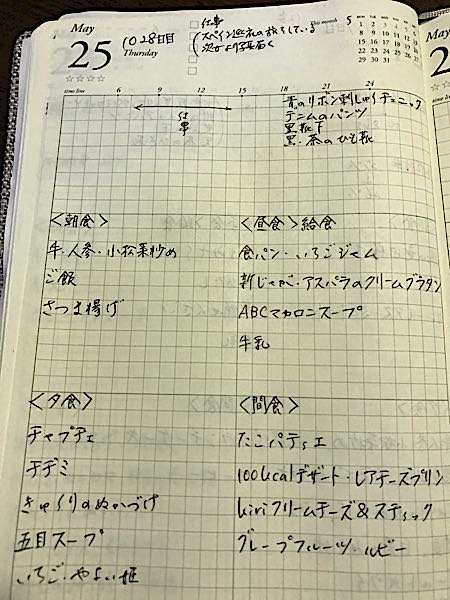 May
25
Thursday
1028日目
仕事
スペイン巡礼の旅をしている
This month 5
MON TUE WED THU FRI SAT SUN
1 2 3 4 5 6 7
8 9 10 11 12 13 14
15 16 17 18 19 20 21
22 23 24 25 26 27 28
29 30 31
☆☆☆☆
time line 6 9 12 15 18 21 24
仕事
青のリボン刺しゅうチュニック
デニムのパンツ
黒靴下
黒・茶のひも靴
<朝食>
牛・人参・小松菜炒め
ご飯
さつま揚げ
<昼食>給食
食パン・いちごジャム
新じゃが・アスパラのクリームグラタン
ABCマカロニスープ
牛乳
<夕食>
チャプチェ
チヂミ
きゅうりのぬかづけ
五目スープ
いちご・やよい姫
<間食>
たこパティエ
100kcalデザート・レアチーズプリン
kiriクリームチーズ&スティック
グレープフルーツ・ルビー